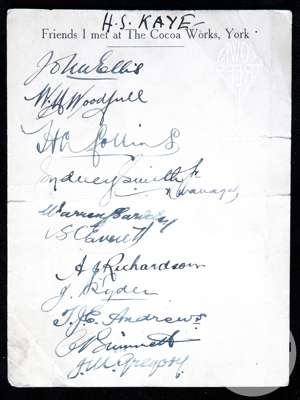 H.S. KAYE
Friends I met at The Cocoa Works, York
John Ellis
W.M Woodfull
H L Collins
Sydney Smith Jr
Manager
Warren Bardsley
S.C. Everett
A J Richardson
J. Ryder
T.J.E. Andrews
C V Grimmett
J.M Gregory